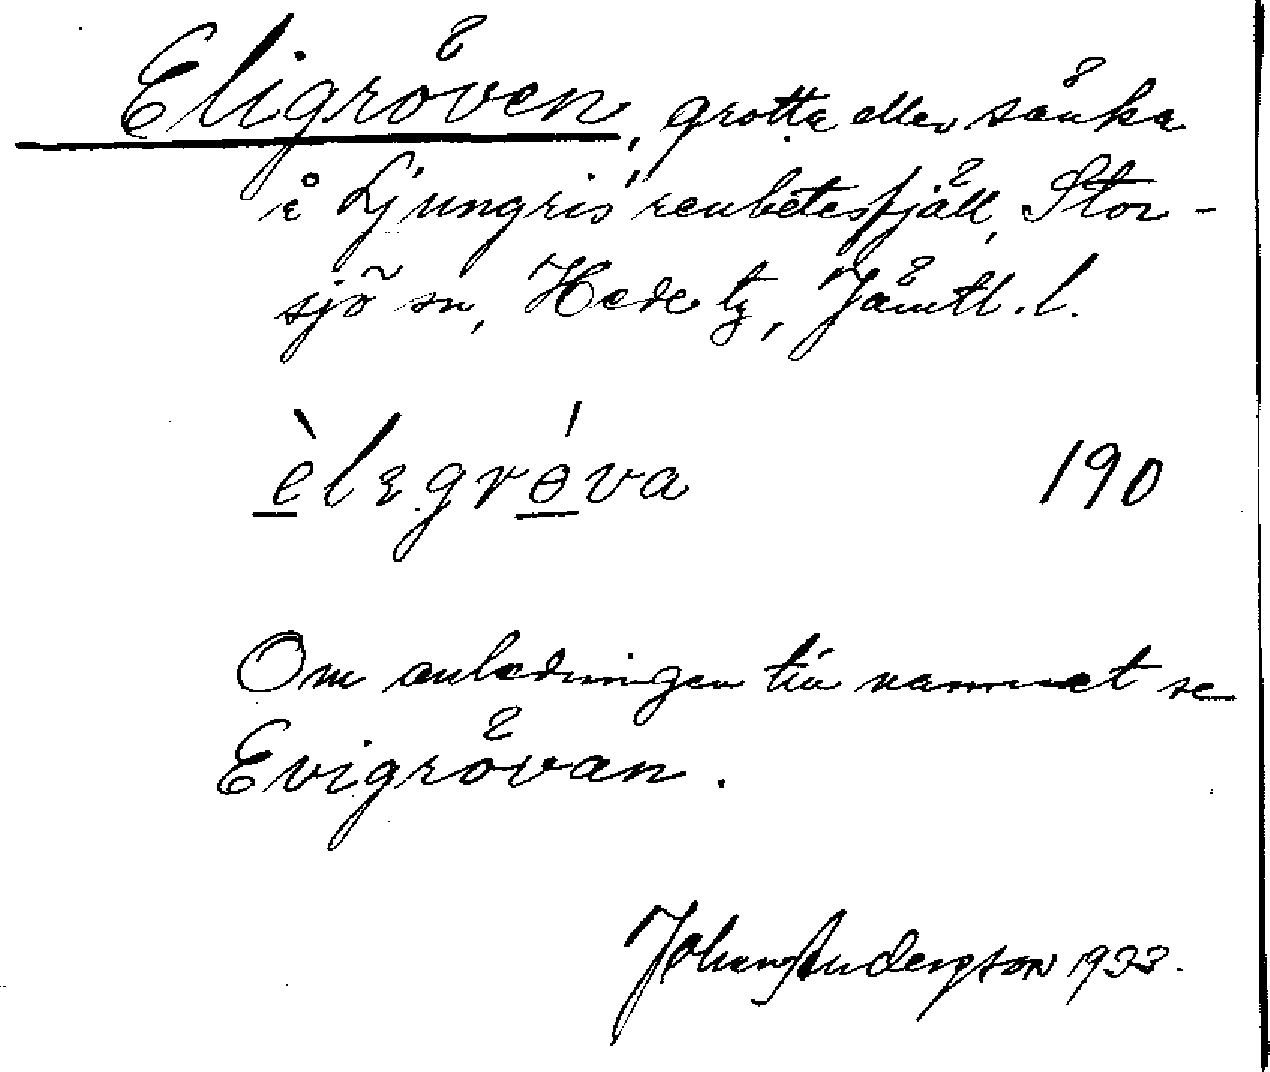 Eligröven, grotta eller sänka
å Ljungris' renbetesfjäll, Stor-
sjö sn, Hede tg, Jämtl. l.
èlegrǿva 190
Om anledningen till namnet se
Evigrövan.
Johan Andersson 1933.